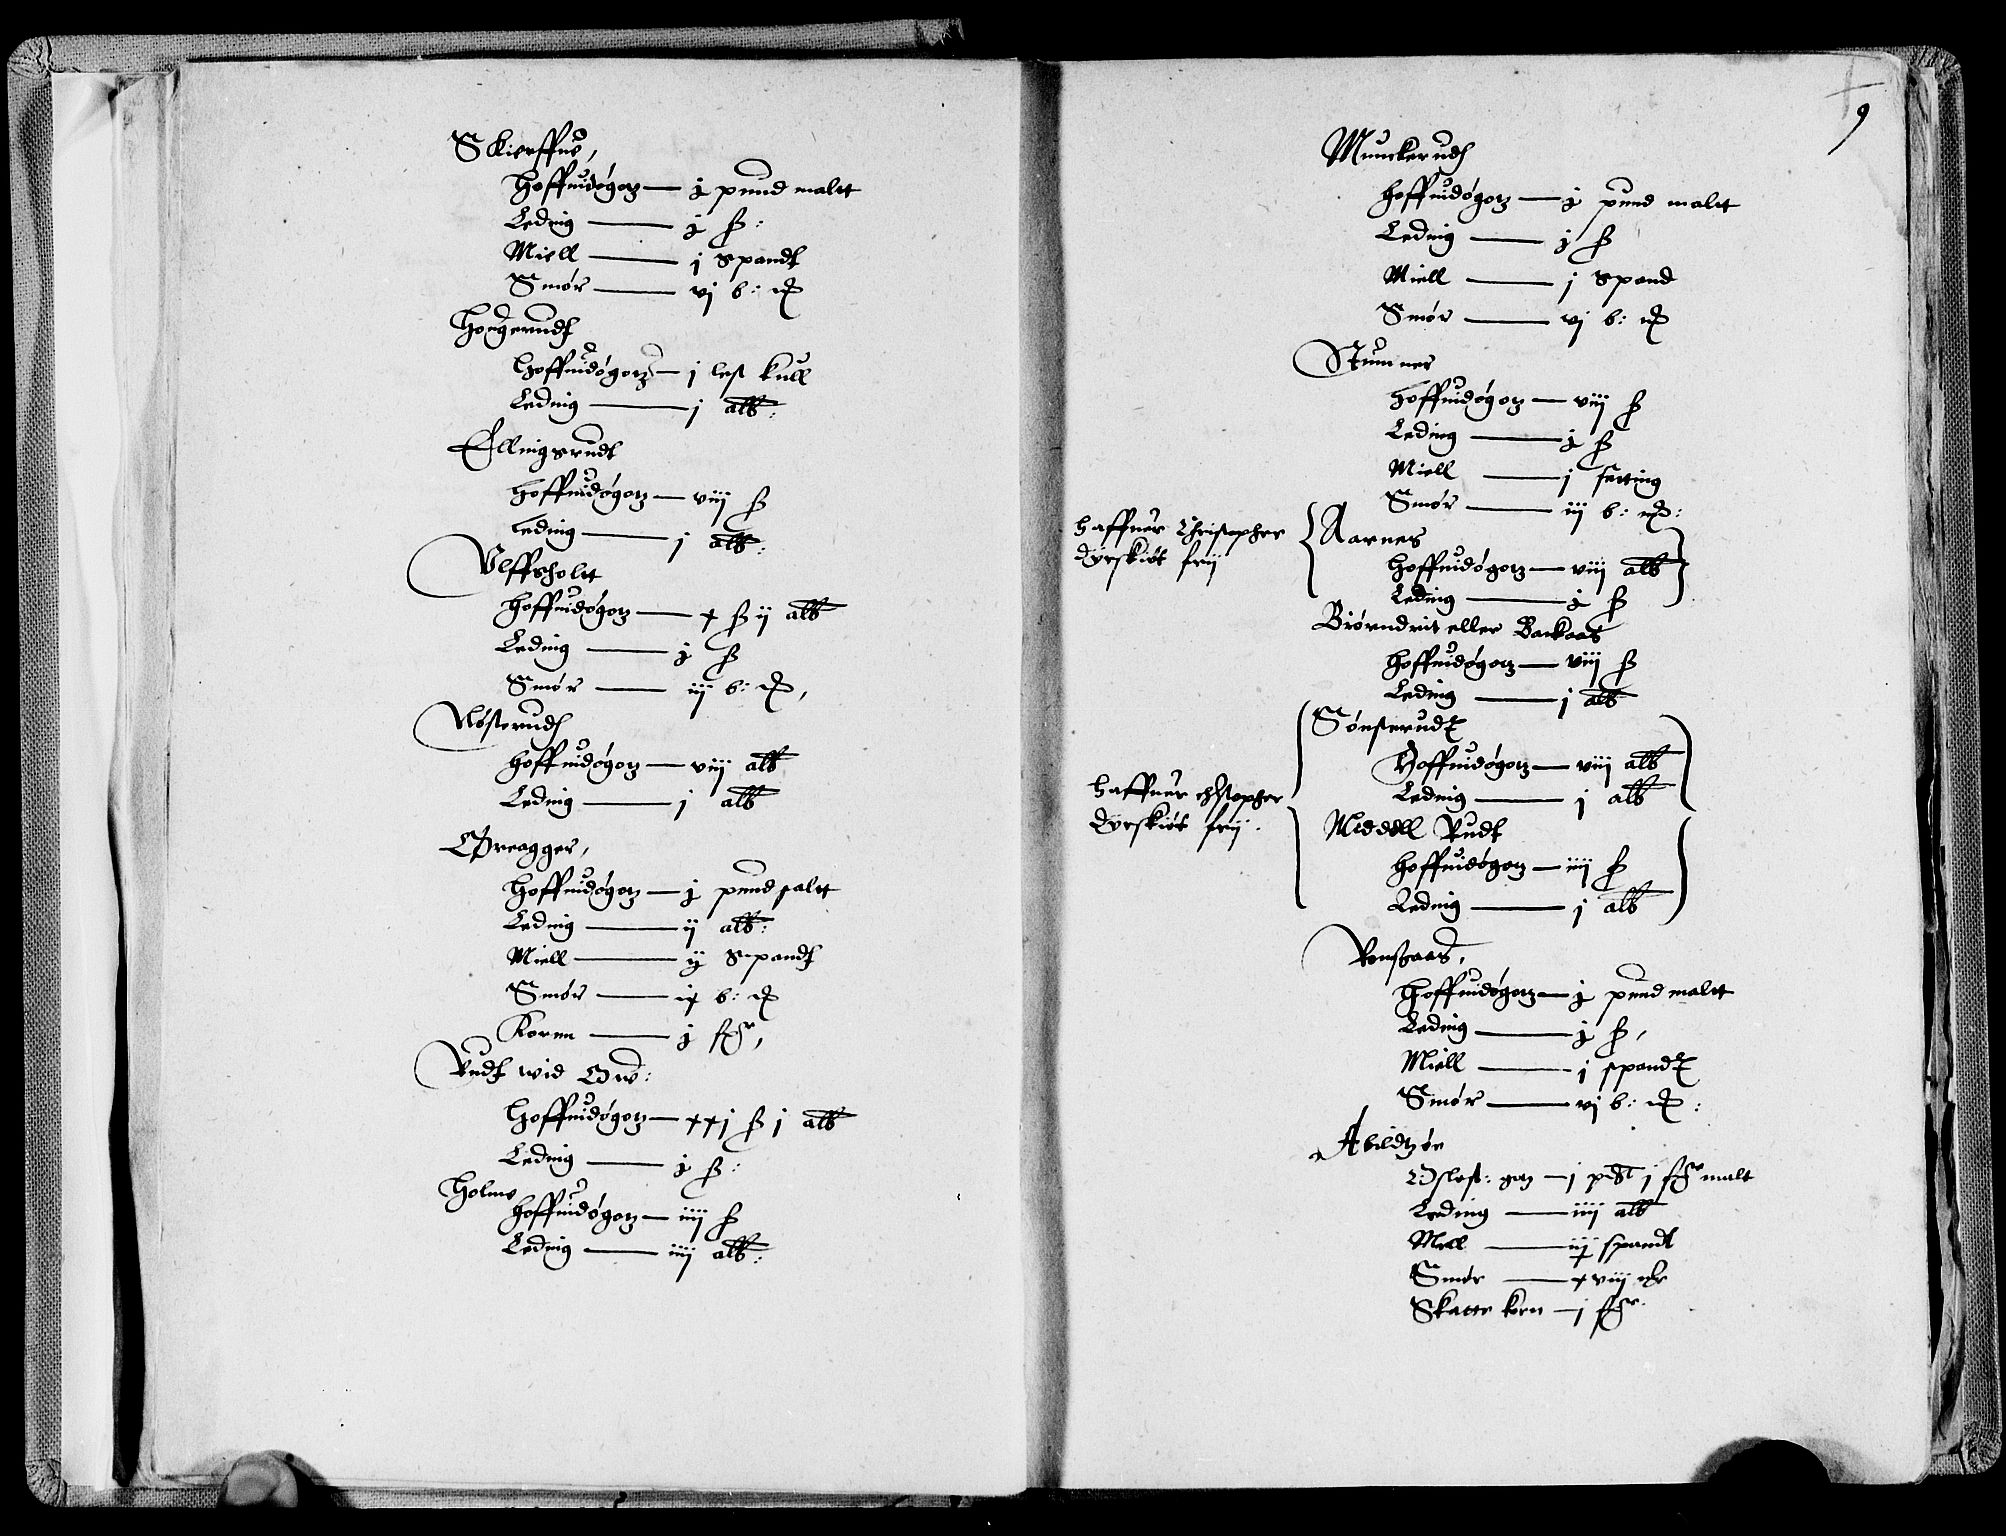 Skierffue,
Hoffuidøgorz — j pund maltt
Leding — j ß:
Miell — j Spandt
Smør — vj b: 
Hougerudt
Hoffuidøgorz — j lest kull
Leding — j alb:
Ellingsrudt
Hoffuidøgorz — viij ß
Leding — j alb:
Vlffsholtt
Hoffuidøgorz — x ß ij alb
Leding — j ß
Smør — iij b:
Røsterudt
Hoffuidøgorz — viij alb
Leding — j alb
Greagger,
Hoffuidøgorz — j pund saltt
Leding — ij alb:
Miell — ij Spandt
Smør — ix b:
Kornn — j
Rudt wid Ow:
Hoffuidøgorz — xxj ß j alb
Leding — j ß:
Holme
Hoffuidøgorz — iiij ß
Leding — iiij alb:
9
Munckerudt
Hoffuidøgorz — j pund maltt
Leding — j ß
Miell — j Spand
Smør — vj b:
Stumner
Hoffuidøgorz — viij ß
Leding — j ß
Miell — j setting
Smør — iij b:
Haffuer Christopher
Dyrskiøt frij
Aarnes
Hoffuidøgorz — viij alb
Leding — j ß
Biørndruit eller Backaas
Hoffuidøgorz — viij ß
Leding — j alb
Haffuer Christopher
Dyrskiøt frij.
Sønsterudt
Hoffuidøgorz — viij alb
Leding — j alb
Middell Rudt
Hoffuidøgorz — iiij ß
Leding — j alb
Ronsaas,
Hoffuidøgorz — j pund maltt
Leding — j ß,
Miell — j spandt
Smør — vj b:
Abildtzøe
Oslost: gorz — j pdt j malt
Leding — iiij alb
Mell — spandt
Smør — xviij
Skatte korn — j